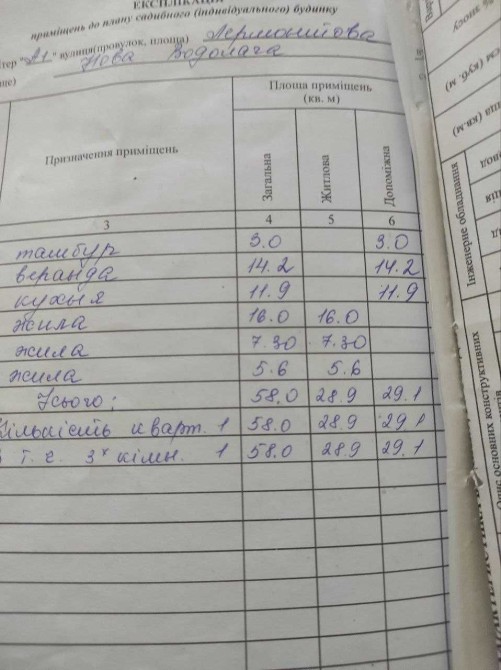 ЕКСПЛІКАЦІЯ
приміщень до плану садибного (індивідуального) будинку
вулиця(провулок, площа) Лермонтова
Нова Водолага
Призначення приміщень
Площа приміщень
(кв. м)
Загальна Житлова Допоміжна
3 4 5 6
тамбур 3.0 3.0
веранда 14.2 14.2
кухня 11.9 11.9
жила 16.0 16.0
жила 7.30 7.30
жила 5.6 5.6
Усього: 58,0 28.9 29.1
кварт. 1 58.0 28.9 29.1
т. ч 3х кімн. 1 58.0 28.9 29.1
Інженерне обладнання
основних конструктивних